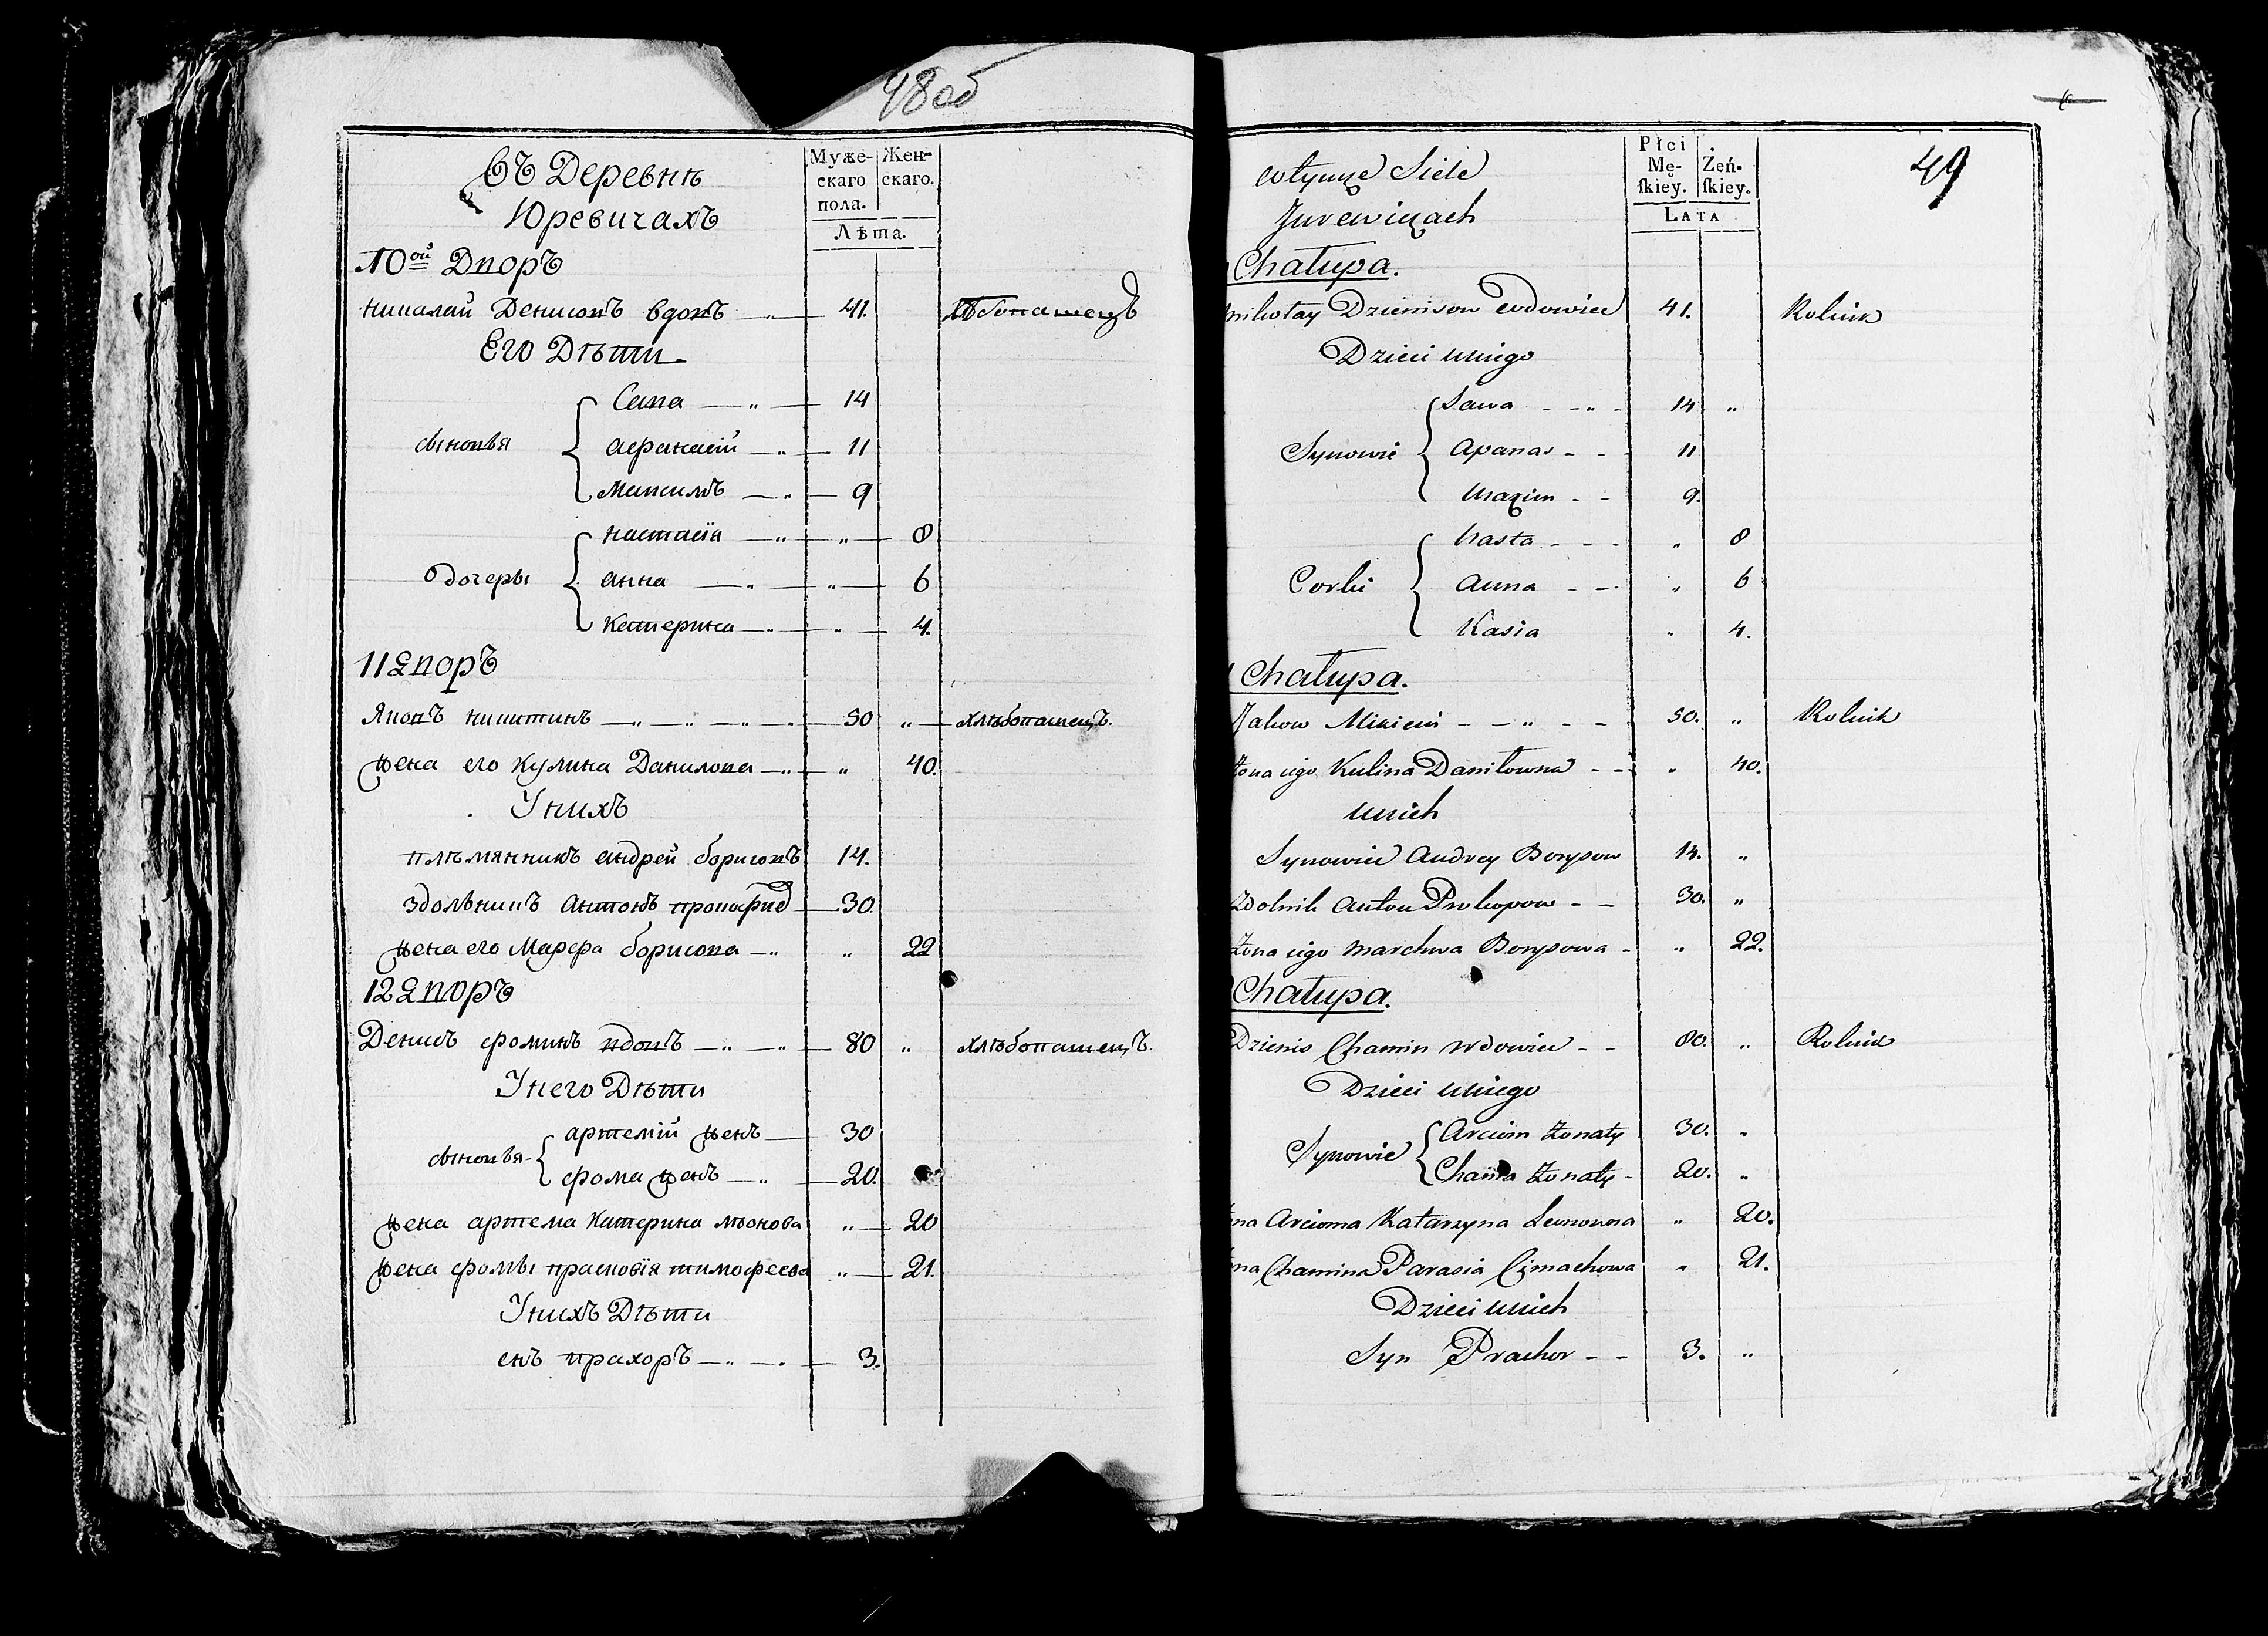 48об
Въ Деревнѣ
Юревичахъ
Мужескаго пола.
Женскаго.
Лѣта.
10ой Дворъ
Николай Денисовъ вдовъ 41. хлѣбопашецъ
Его Дѣти
Сава 14
сыновья Афанасiй 11
Максимъ 9
Настасiя „ 8
Дочеры Анна „ 6
Катерина „ 4.
11 Дворъ
Яковъ Никитинъ 50 „ хлѣбопашецъ.
жена его Кулина Данилова „ 40.
У нихъ
плѣмянникъ Андрей Борисовъ 14.
здольникъ Антонъ 30
жена его Марфа Борисова „ 22
12 Дворъ
Денисъ Фоминъ вдовъ 80 „ хлѣбопашецъ.
У него Дѣти
артемiй женъ 30
сыновья
фома женъ 20.
жена артема Катерина лѣонова „ 20
жена фомы прасковiя тимофеева „ 21.
У нихъ Дѣти
снъ прахоръ 3.
49
Siele
Jurewiczach
Płci
Mę-
ſkiey.
Żeń-
ſkiey.
LATA
Chałupa.
Mikołay Dzienisow wdowiec 41. Rolnik
Dzieci u niego
Sawa 14 „
Synowie Apanas 11
Maxim 9.
Nasta „ 8
Corki Anna „ 6
Kasia „ 4.
Chałupa.
Jakow Mikicin 50. „ Rolnik
Żona iego Kulina Daniłowna „ 40.
u nich
Synowiec Andrey Borysow 14. „
Zdolnik Anton Prokopow 30. „
Żona iego Marchwa Borysowa „ 22.
Chałupa.
Dzienis Chamin wdowiec 80. „ Rolnik
Dzieci u niego
Arciom żonaty 30. „
Synowie
Chama żonaty 20. „
na Arcioma Katarzyna Leonowa „ 20.
na Chamina Parasia Cimachowa „ 21.
Dzieci u nich
Syn Prachor 3. „